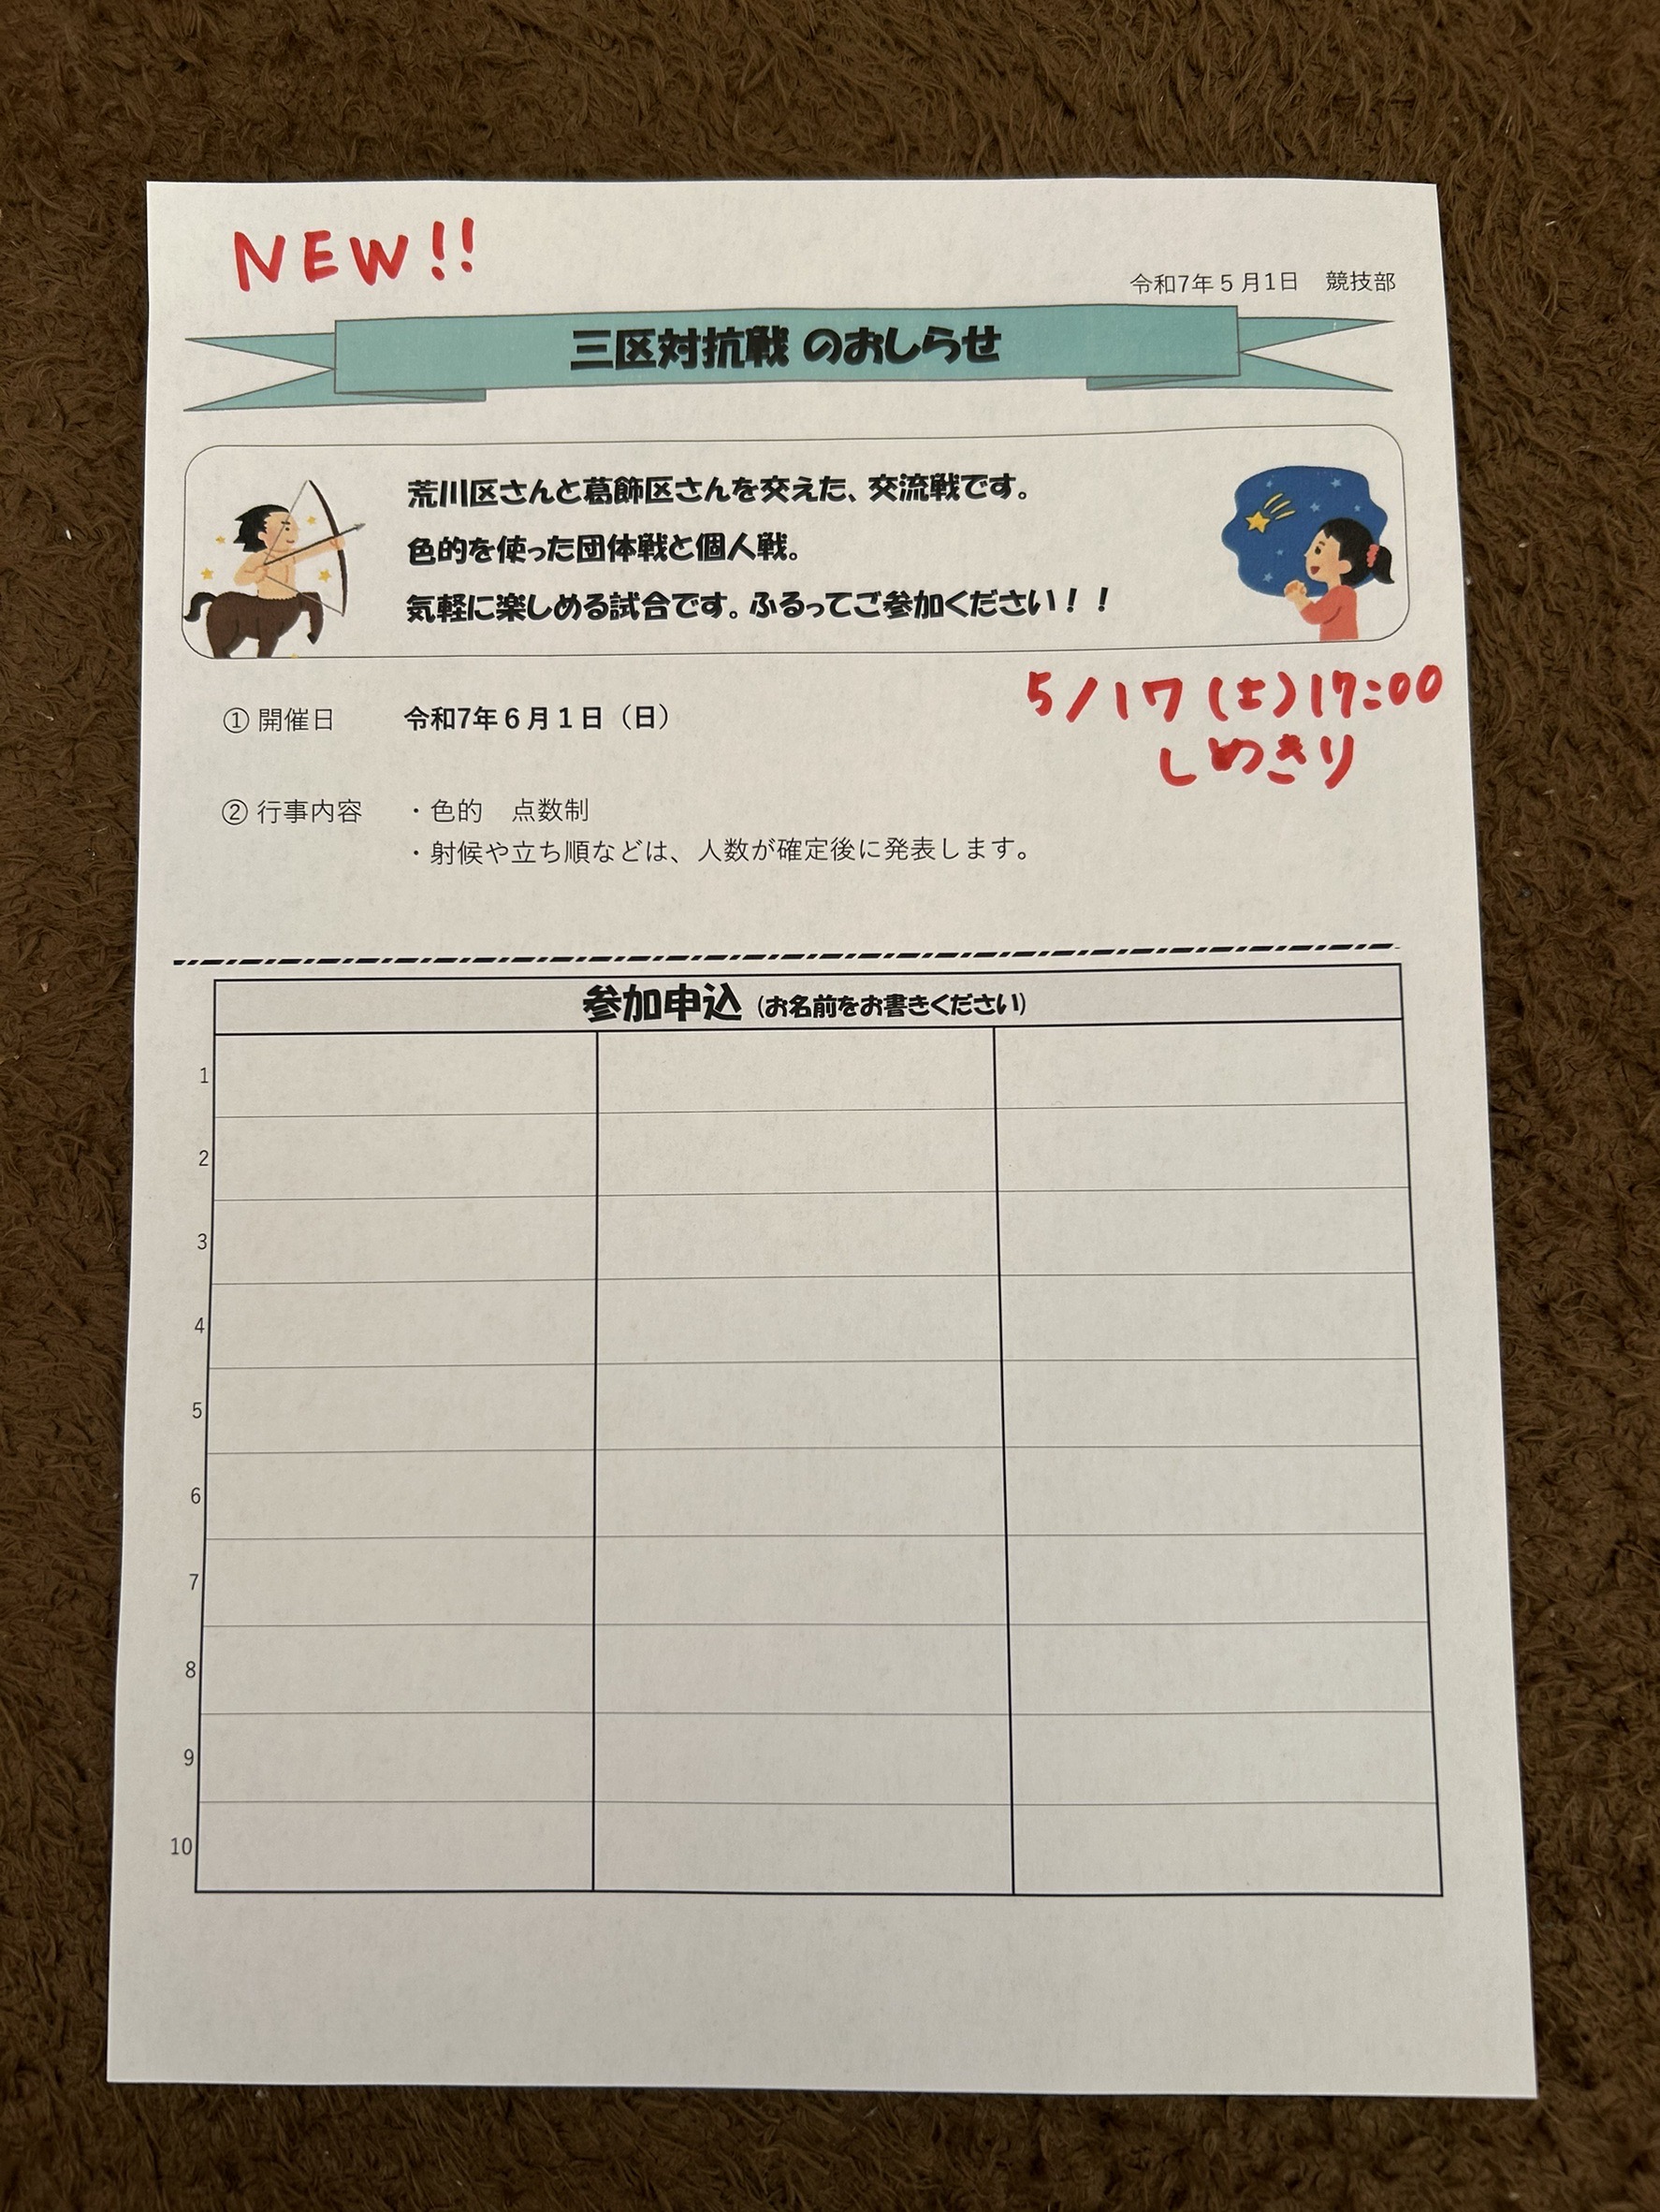 NEW!!
令和7年5月1日 競技部
三区対抗戦 のおしらせ
荒川区さんと葛飾区さんを交えた、交流戦です。
色的を使った団体戦と個人戦。
気軽に楽しめる試合です。ふるってご参加ください！！
5/17(土)17:00
しめきり
① 開催日 令和7年6月1日（日）
② 行事内容 ・色的 点数制
・射候や立ち順などは、人数が確定後に発表します。
参加申込（お名前をお書きください）
1
2
3
4
5
6
7
8
9
10